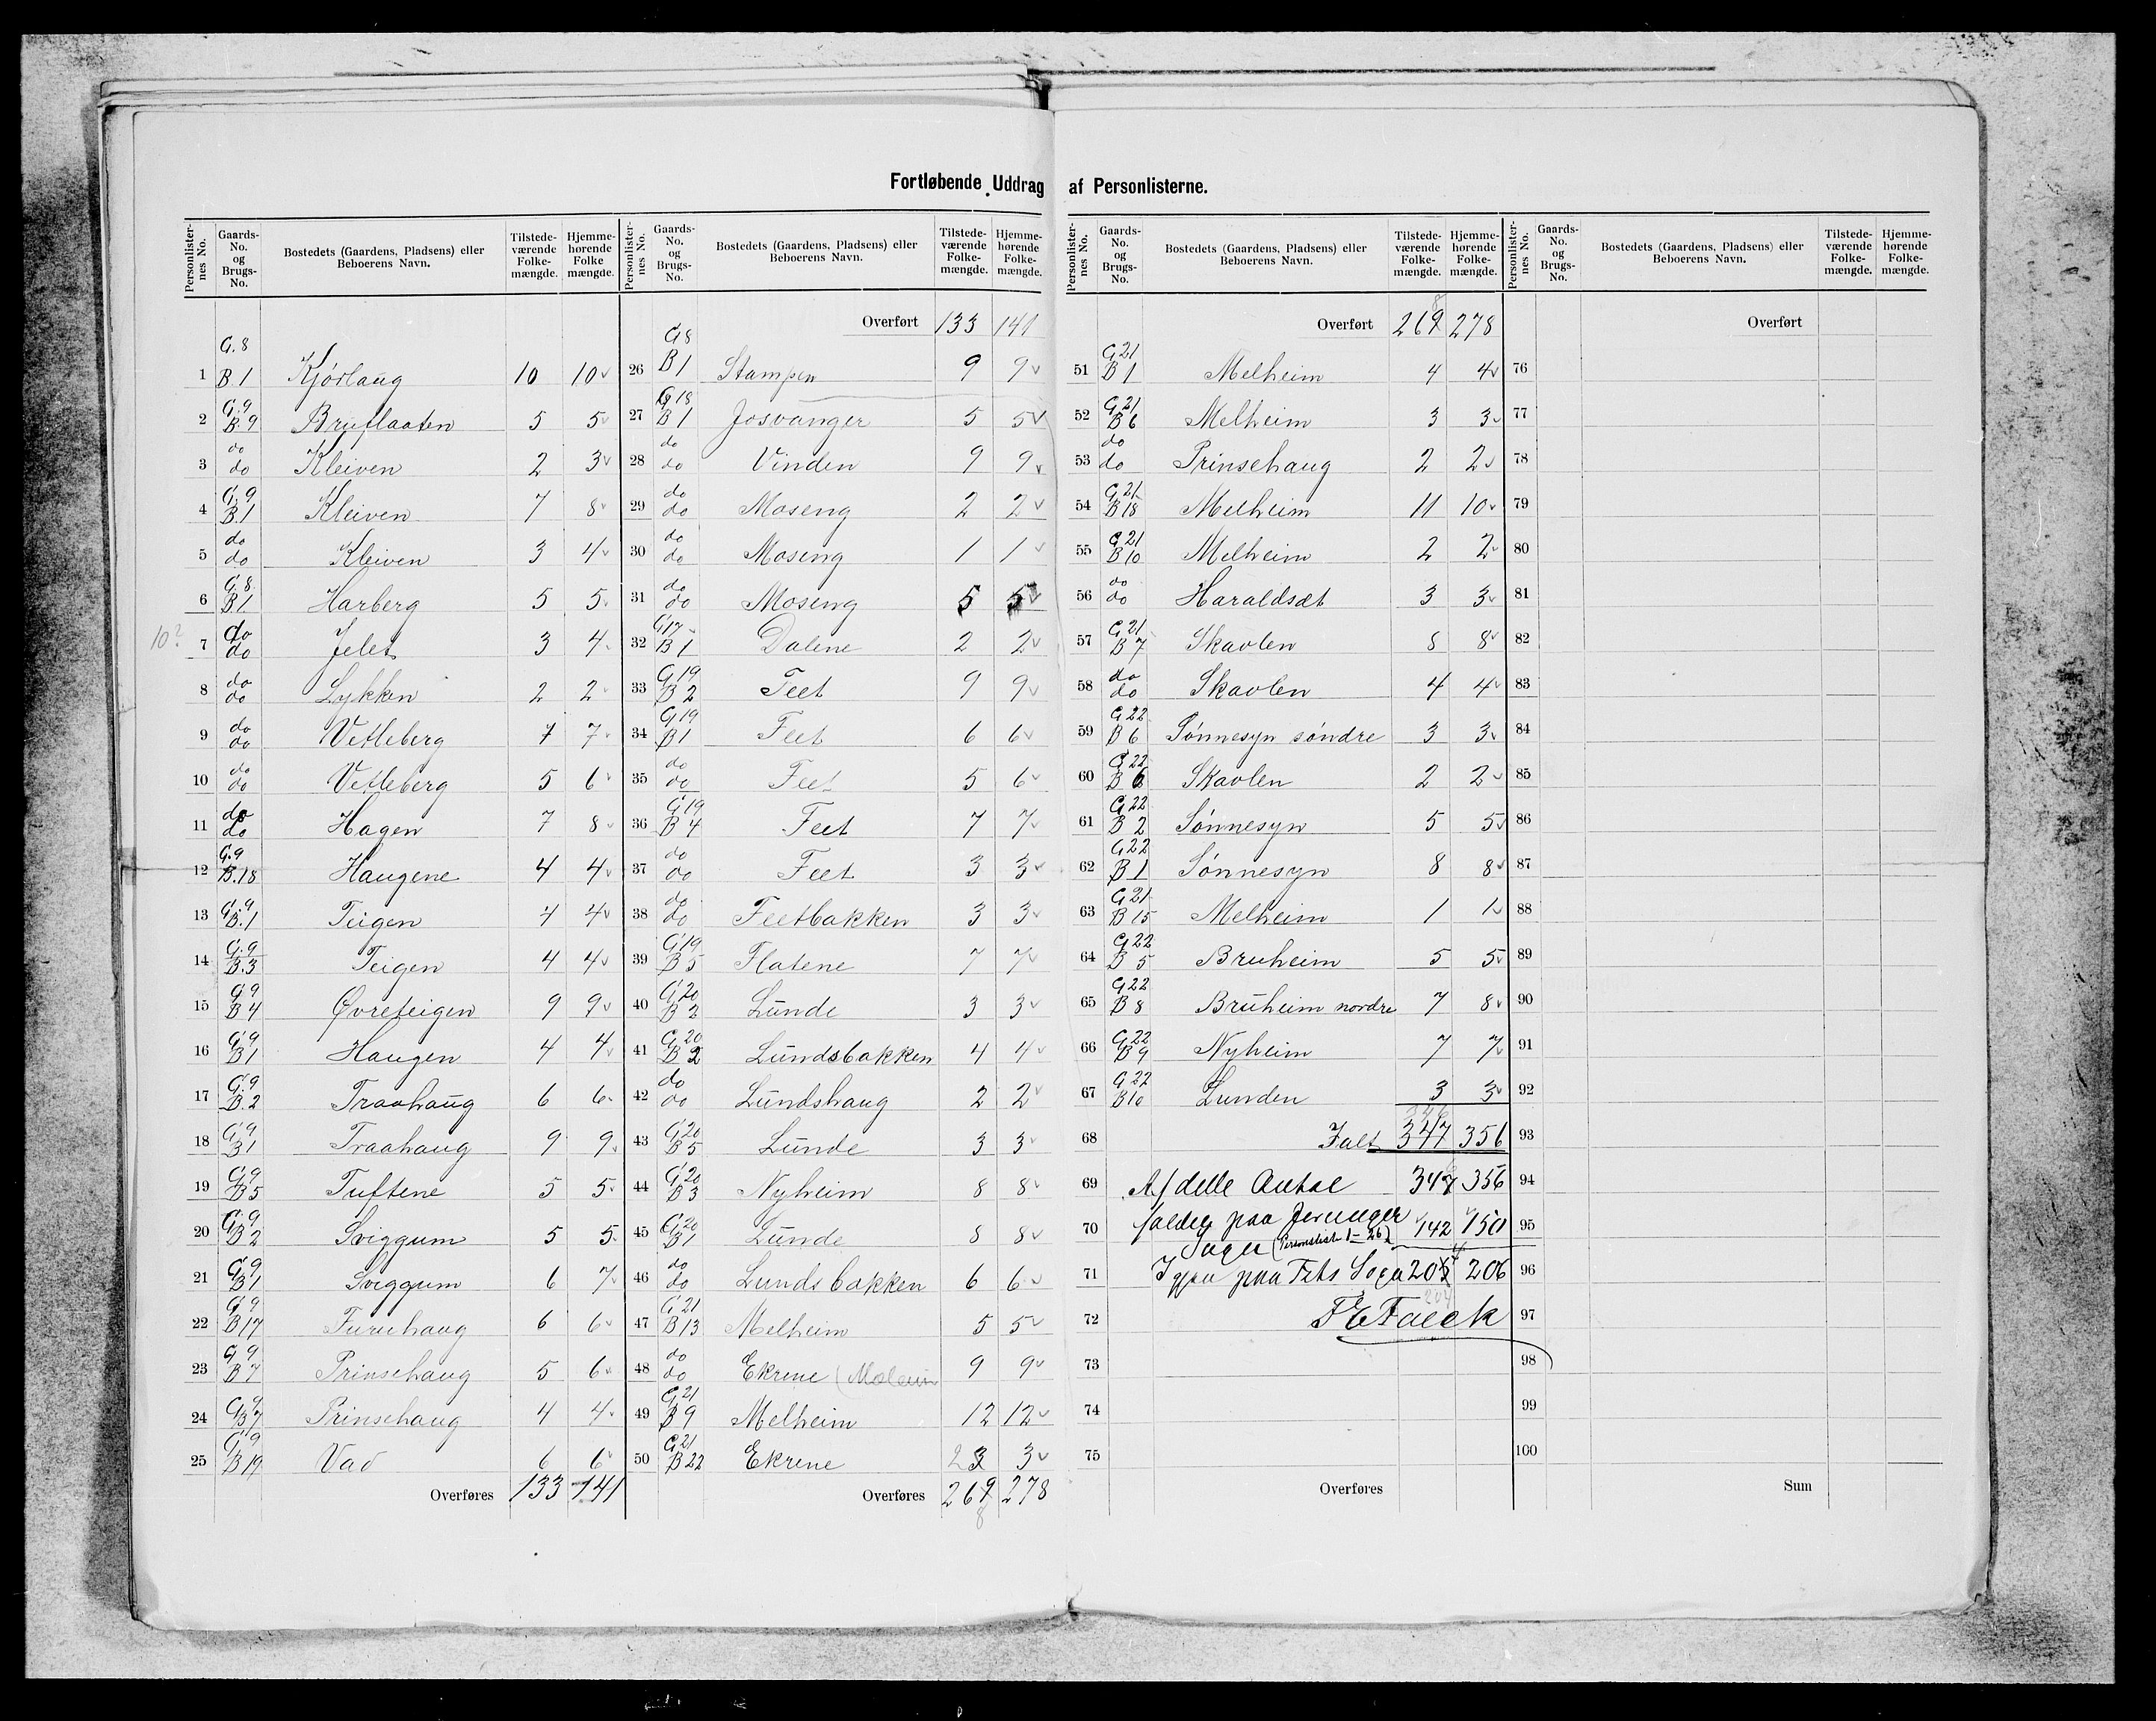 Fortløbende Uddrag af Personlisterne.
Personlister-nes No. | Gaards-No. og Brugs-No. | Bostedets (Gaardens, Pladsens) eller Beboerens Navn. | Tilstede-værende Folke-mængde. | Hjemme-hørende Folke mængde.
1 G.8 B.1 Kjørlaug 10 10
2 G.9 B.9 Bruflaaten 5 5
3 do do Kleiven 2 3
4 G.9 B.1 Kleiven 7 8
5 do do Kleiven 3 4
6 G.8 B1 Harberg 5 5
10? 7 do do Jelet 3 4
8 do do Lykken 2 2
9 do do Vetleberg 7 7
10 do do Vetleberg 5 6
11 do do Hagen 7 8
12 G.9 B.18 Haugene 4 4
13 G.9 B.1 Teigen 4 4
14 G.9 B.3 Teigen 4 4
15 G9 B4 Øvreteigen 9 9
16 G9 B1 Haugen 4 4
17 G.9 B.2 Traahaug 6 6
18 G9 B1 Traahaug 9 9
19 G9 B5 Tuftene 5 5
20 G.9 B2 Sviggum 5 5
21 G.9 B1 Sviggum 6 7
22 G9 B17 Furuhaug 6 6
23 G9 B7 Prinsehaug 5 6
24 G9 B7 Prinsehaug 4 4
25 G9 B19 Vad 6 6
Overføres 133 141
Personlister-nes No. | Gaards-No. og Brugs-No. | Bostedets (Gaardens, Pladsens) eller Beboerens Navn. | Tilstede-værende Folke-mængde. | Hjemme-hørende Folke-mængde.
Overført 133 141
26 G8 B1 Stampen 9 9
27 G18 B1 Josvanger 5 5
28 do do Vinden 9 9
29 do do Moseng 2 2
30 do do Moseng 1 1
31 do do Moseng 5 5
32 G17 B1 Dalene 2 2
33 G19 B2 Feet 9 9
34 G19 B1 Feet 6 6
35 do do Feet 5 6
36 G19 B4 Feet 7 7
37 do do Feet 3 3
38 do do Feetbakken 3 3
39 G19 B5 Flatene 7 7
40 G20 B2 Lunde 3 3
41 G20 B2 Lundsbakken 4 4
42 do do Lundshaug 2 2
43 G20 B5 Lunde 3 3
44 G20 B3 Nyheim 8 8
45 G20 B1 Lunde 8 8
46 do do Lundsbakken 6 6
47 G21 B13 Melheim 5 5
48 do do Ekrene 9 9
49 G21 B9 Melheim 12 12
50 G21 B22 Ekrene 2 3 3
Overføres 269 278
8
Personlister-nes No. | Gaards-No. og Brugs-No. | Bostedets (Gaardens, Pladsens) eller Beboerens Navn. | Tilstede-værende Folke-mængde. | Hjemme-hørende Folke-mængde.
8
Overført 269 278
51 G21 B1 Melheim 4 4
52 G21 B6 Melheim 3 3
53 do do Prinsehaug 2 2
54 G21 B18 Melheim 11 10
55 G21 B10 Melheim 2 2
56 do do Haraldsæt 3 3
57 G21 B7 Skavlen 8 8
58 do do Skavlen 4 4
59 G22 B6 Sønnesyn søndre 3 3
60 G22 B6 Skavlen 2 2
61 G22 B2 Sønnesyn 5 5
62 G22 B1 Sønnesyn 8 8
63 G21 B15 Melheim 1 1
64 G22 B5 Bruheim 5 5
65 G22 B8 Bruheim nordre 7 8
66 G22 B9 Nyheim 7 7
67 G22 B10 Lunden 3 3
346
68 Ialt 347 356
69 Af dette Antal 347 356
70 falder paa Jevunger 142 150
Sogn (Personliste 1–26)
71 Igjen paa Fets Sogn 205 206
204
72 F E Falck
73
74
75
Overføres
Personlister-nes No. | Gaards-No. og Brugs-No. | Bostedets (Gaardens, Pladsens) eller Beboerens Navn. | Tilstede-værende Folke-mængde. | Hjemme-hørende Folke-mængde.
Overført
76
77
78
79
80
81
82
83
84
85
86
87
88
89
90
91
92
93
94
95
96
97
98
99
100
Sum